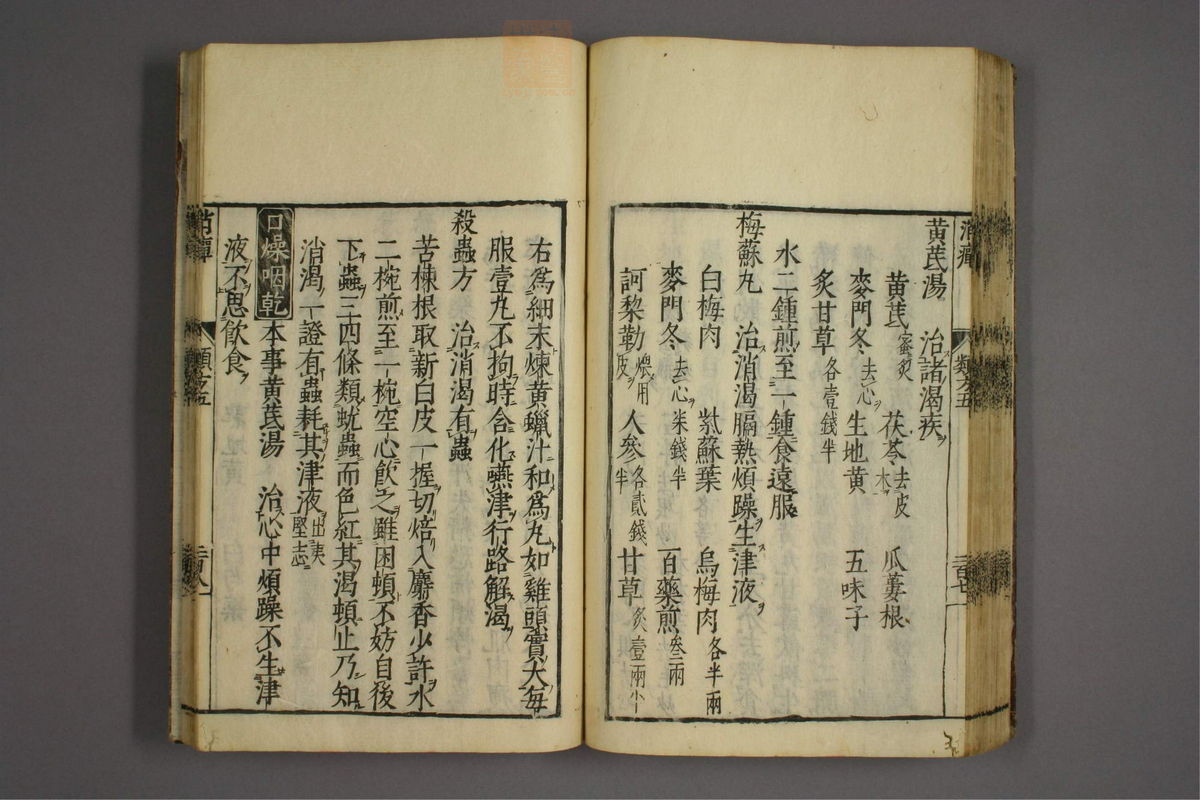 黃芪湯 治諸渴疾
黃芪蜜炙 茯苓去皮木 瓜蔞根
麥門冬去心 生地黃 五味子
炙甘草各壹錢半
水二鍾煎至一鍾食遠服
梅蘇丸 治消渴膈熱煩躁生津液
白梅肉 紫蘇葉 烏梅肉各半兩
麥門冬去心柒錢半 百藥煎叁兩
訶黎勒煨用皮 人參各貳錢半 甘草炙壹兩
右爲細末煉黃蠟汁和爲丸如雞頭實大每
服壹丸不拘時含化嚥津行路解渴
殺蟲方 治消渴有蟲
苦楝根取新白皮一握切焙入麝香少許水
二椀煎至一椀空心飮之雖困頓不妨自後
下蟲三四條類蚘蟲而色紅其渴頓止乃知
消渴一證有蟲耗其津液出夷堅志
口燥咽乾 本事黃芪湯 治心中煩躁不生津
液不思飮食
類方五